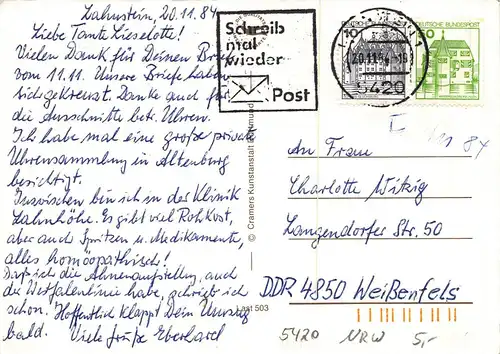 Lahnstein, 20.11.84
Liebe Tante Lieselotte!
Vielen Dank für Deinen Brief
vom 11.11. Unsere Briefe haben
sich gekreuzt. Danke auch für
die Ausschnitte betr. Uhren.
Ich habe mal eine große private
Uhrensammlung in Altenburg
besichtigt.
Inzwischen bin ich in der Klinik
Lahnhöhe. Es gibt viel Rohkost,
aber auch Spritzen u. Medikamente,
alles homöopathisch!
Daß ich die Ahnenaufstellung, auch
die Westfalenlinie habe, schrieb ich
schon. Hoffentlich klappt Dein Umzug
bald. Viele Grüße Eberhard
© Cramers Kunstanstalt Dortmund
Schreib
mal
wieder
Post
10
DEUTSCHE BUNDESPOST
50
20.11.84-18
5420
An Frau
Charlotte Witzig
Langendorfer Str. 50
DDR 4850 Weißenfels
503
5420 NRW 5,-